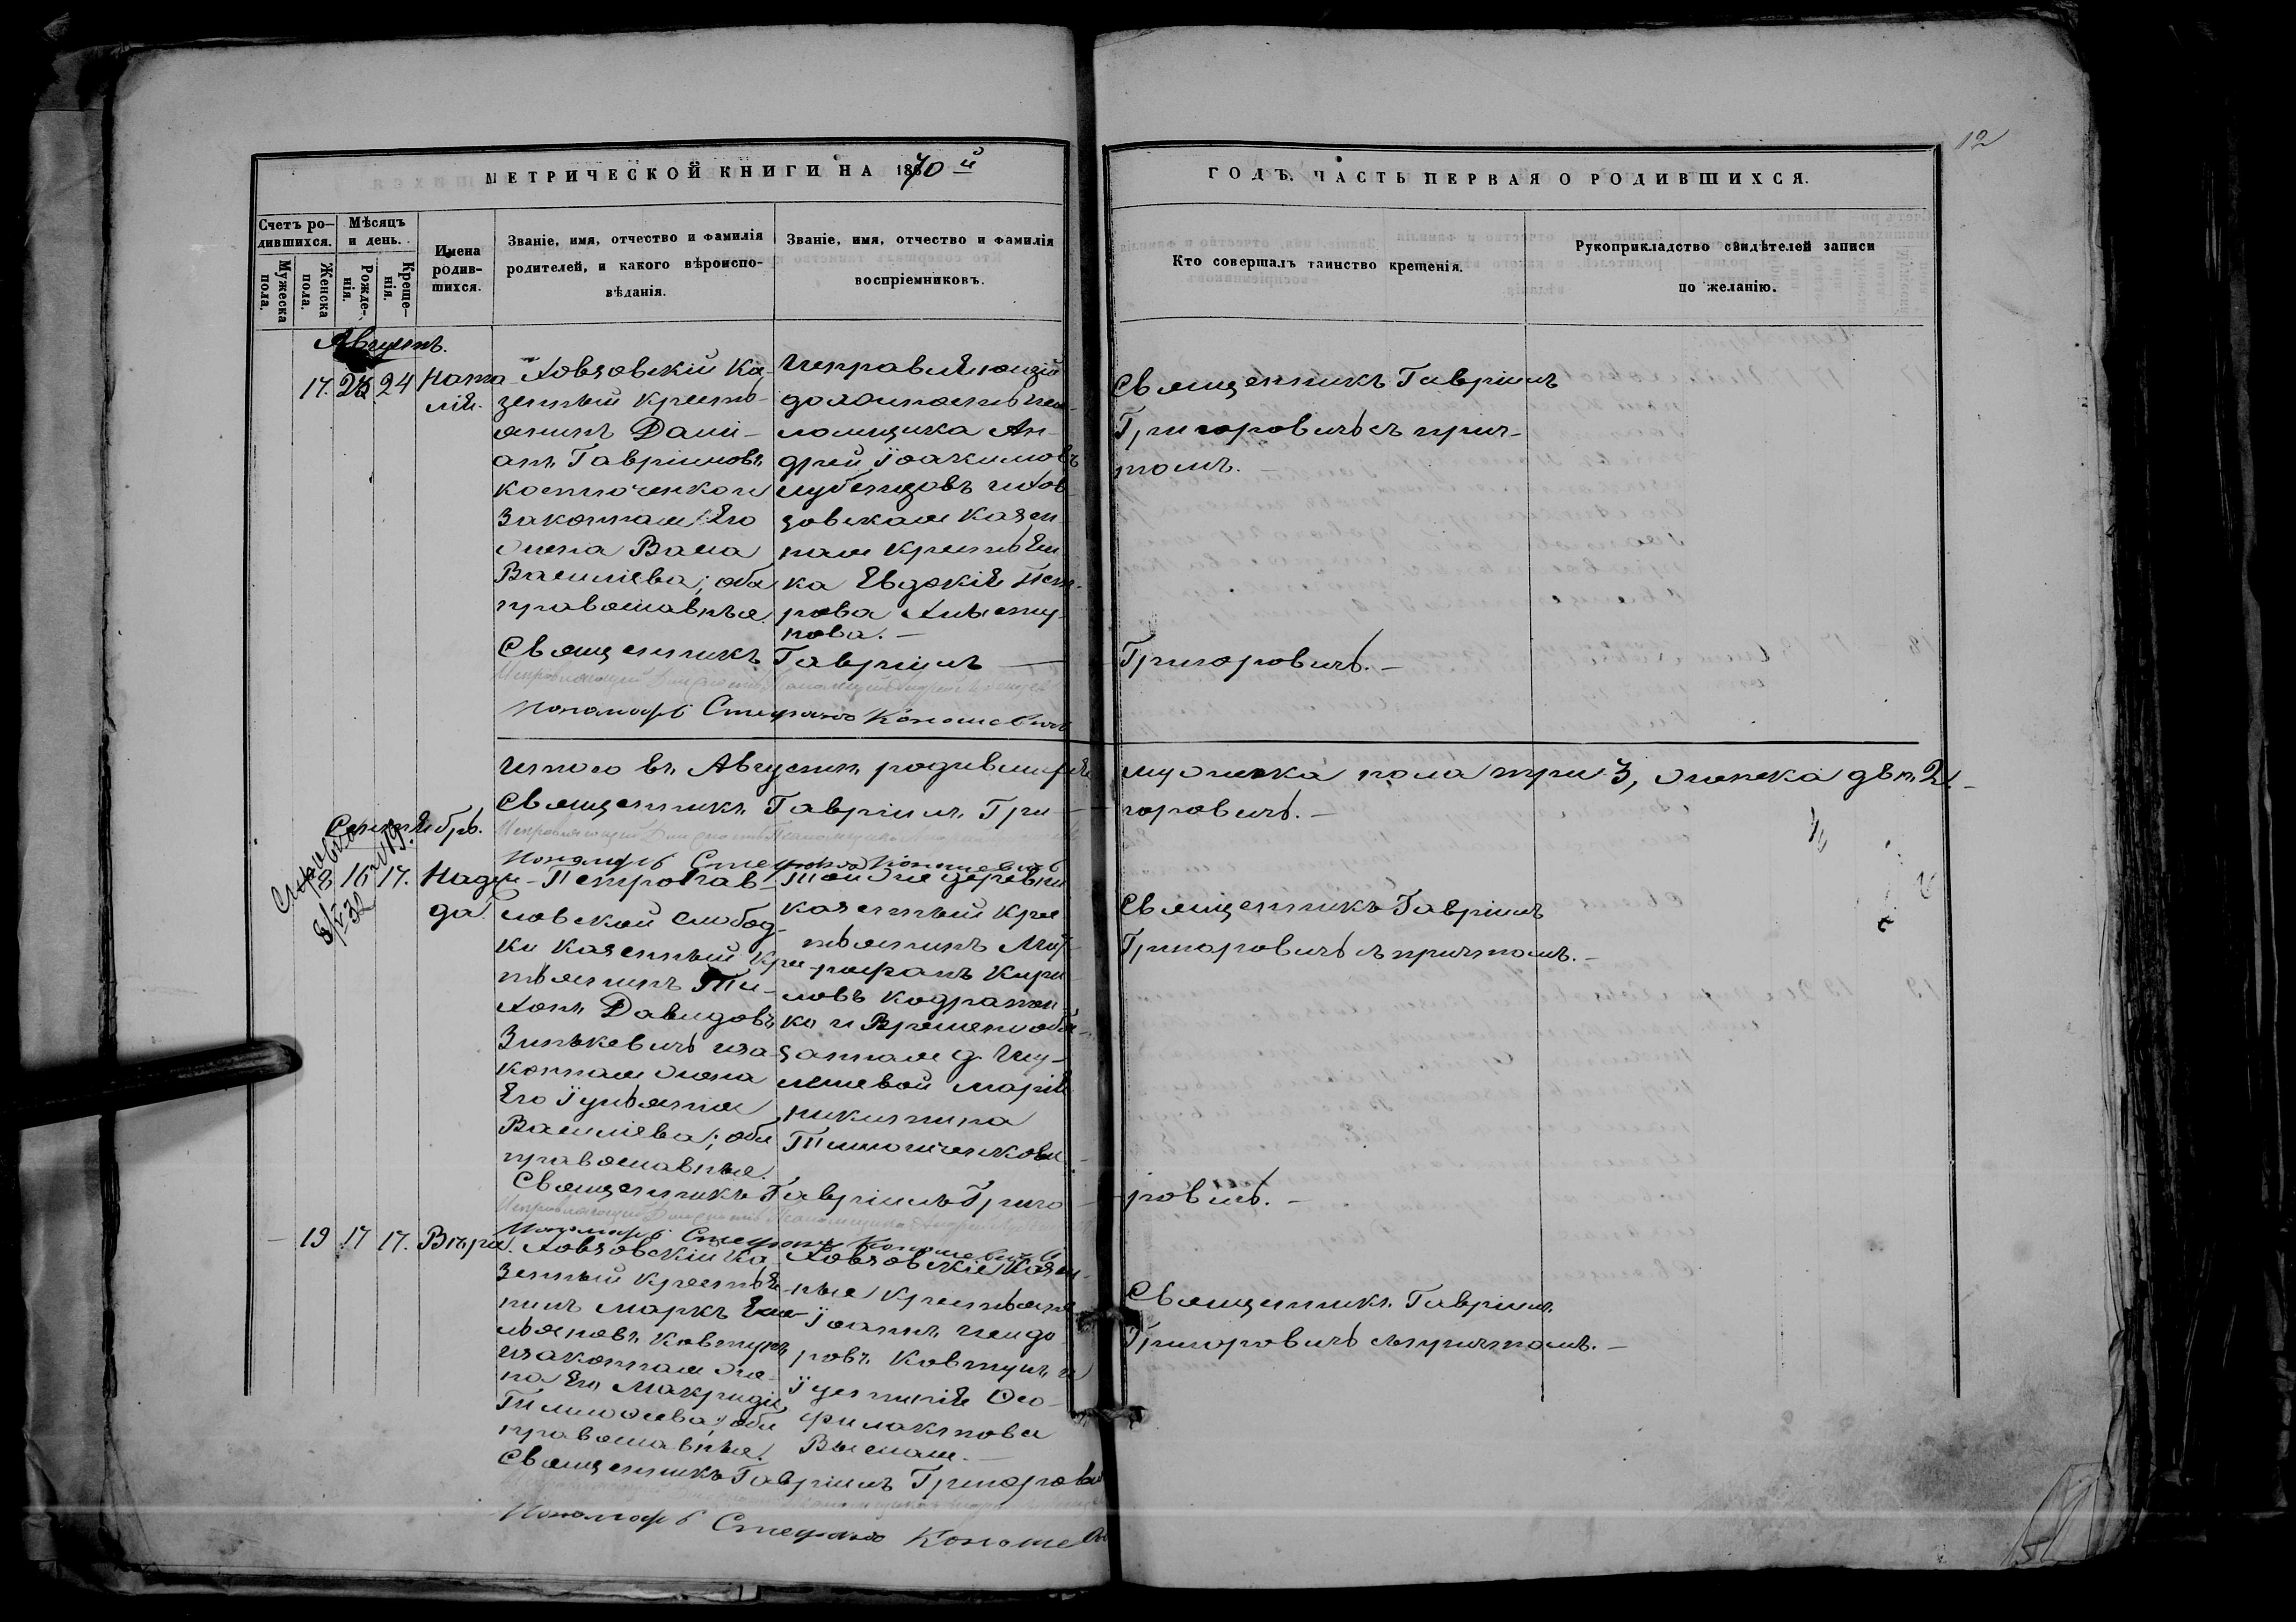 12
МЕТРИЧЕСКОЙ КНИГИ НА 1870й
ГОДЪ. ЧАСТЬ ПЕРВАЯ О РОДИВШИХСЯ.
Счетъ ро-
дившихся.
Мужеска
пола.
Женска
пола.
Мѣсяцъ
и день.
Рожде-
нія.
Креще-
нія.
Имена
родив-
шихся.
Званіе, имя, отчество и фамилія
родителей, и какого вѣроиспо-
вѣданія.
Званіе, имя, отчество и фамилія
воспріемниковъ.
Кто совершалъ таинство крещенія.
Рукоприкладство свидѣтелей записи
по желанію.
Августъ.
17. 24
Ната-
лія.
Ховзовскій Ка-
зенный кресть-
янинъ Дамі-
анъ Гавріиловъ
Костюченко и
Законная Его
Жена Васса
Василіева; оба
православные.
Исправляющій
должность пса-
ломщика Ан-
дрей Іоакимовъ
Лубенцовъ и Хов-
зовская Казен-
ная крестьян-
ка Евдокія Пет-
рова
нова.
Священникъ Гавріилъ
Григоровичъ съ прич-
томъ.
Священникъ Гавріилъ Григоровичъ.
Исправляющій Должность Псаломщика Андрей Лубенцовъ
Пономарь Стефанъ Кономевичъ
Итого въ Августѣ родившихся мужеска пола три 3, женска двѣ 2.
Священникъ Гавріилъ Григоровичъ.
Исправляющій Должность Псаломщика
Пономарь Стефанъ Кономевичъ
Сентябрь.
18 16 17.
Надеж-
да.
Петропав-
ловской слобод-
ки Казенный Кре-
стьянинъ Ти-
хонъ Давидовъ
Зинькевичъ и за-
конная жена
Его Іульянія
Василіева; оба
православные.
Той же деревни
казенный кре-
стьянинъ Мит-
рофанъ Кири-
ловъ Кодратен-
ко и Временнообя-
занная д.
Марія
Никитина
Тимошенкова
Священникъ Гавріилъ
Григоровичъ съ причтомъ.
Священникъ Гавріилъ Григоровичъ.
Исправляющій Должность Псаломщика Андрей
Пономарь Стефанъ Кономевичъ
19 17 17. Вѣра.
Ховзовскій Ка-
зенный крестья-
нинъ Маркъ Еме-
льяновъ Ковтунъ
и законная же-
на Его Макридія
Тимофеева; оба
православные.
Ховзовскіе Казен-
ные крестьяне
Іоаннъ Исидо-
ровъ Ковтунъ и
Іустинія Фео-
филактова
Священникъ Гавріилъ
Григоровичъ съ причтомъ.
Священникъ Гавріилъ Григорович
Пономарь Стефанъ Кономеви